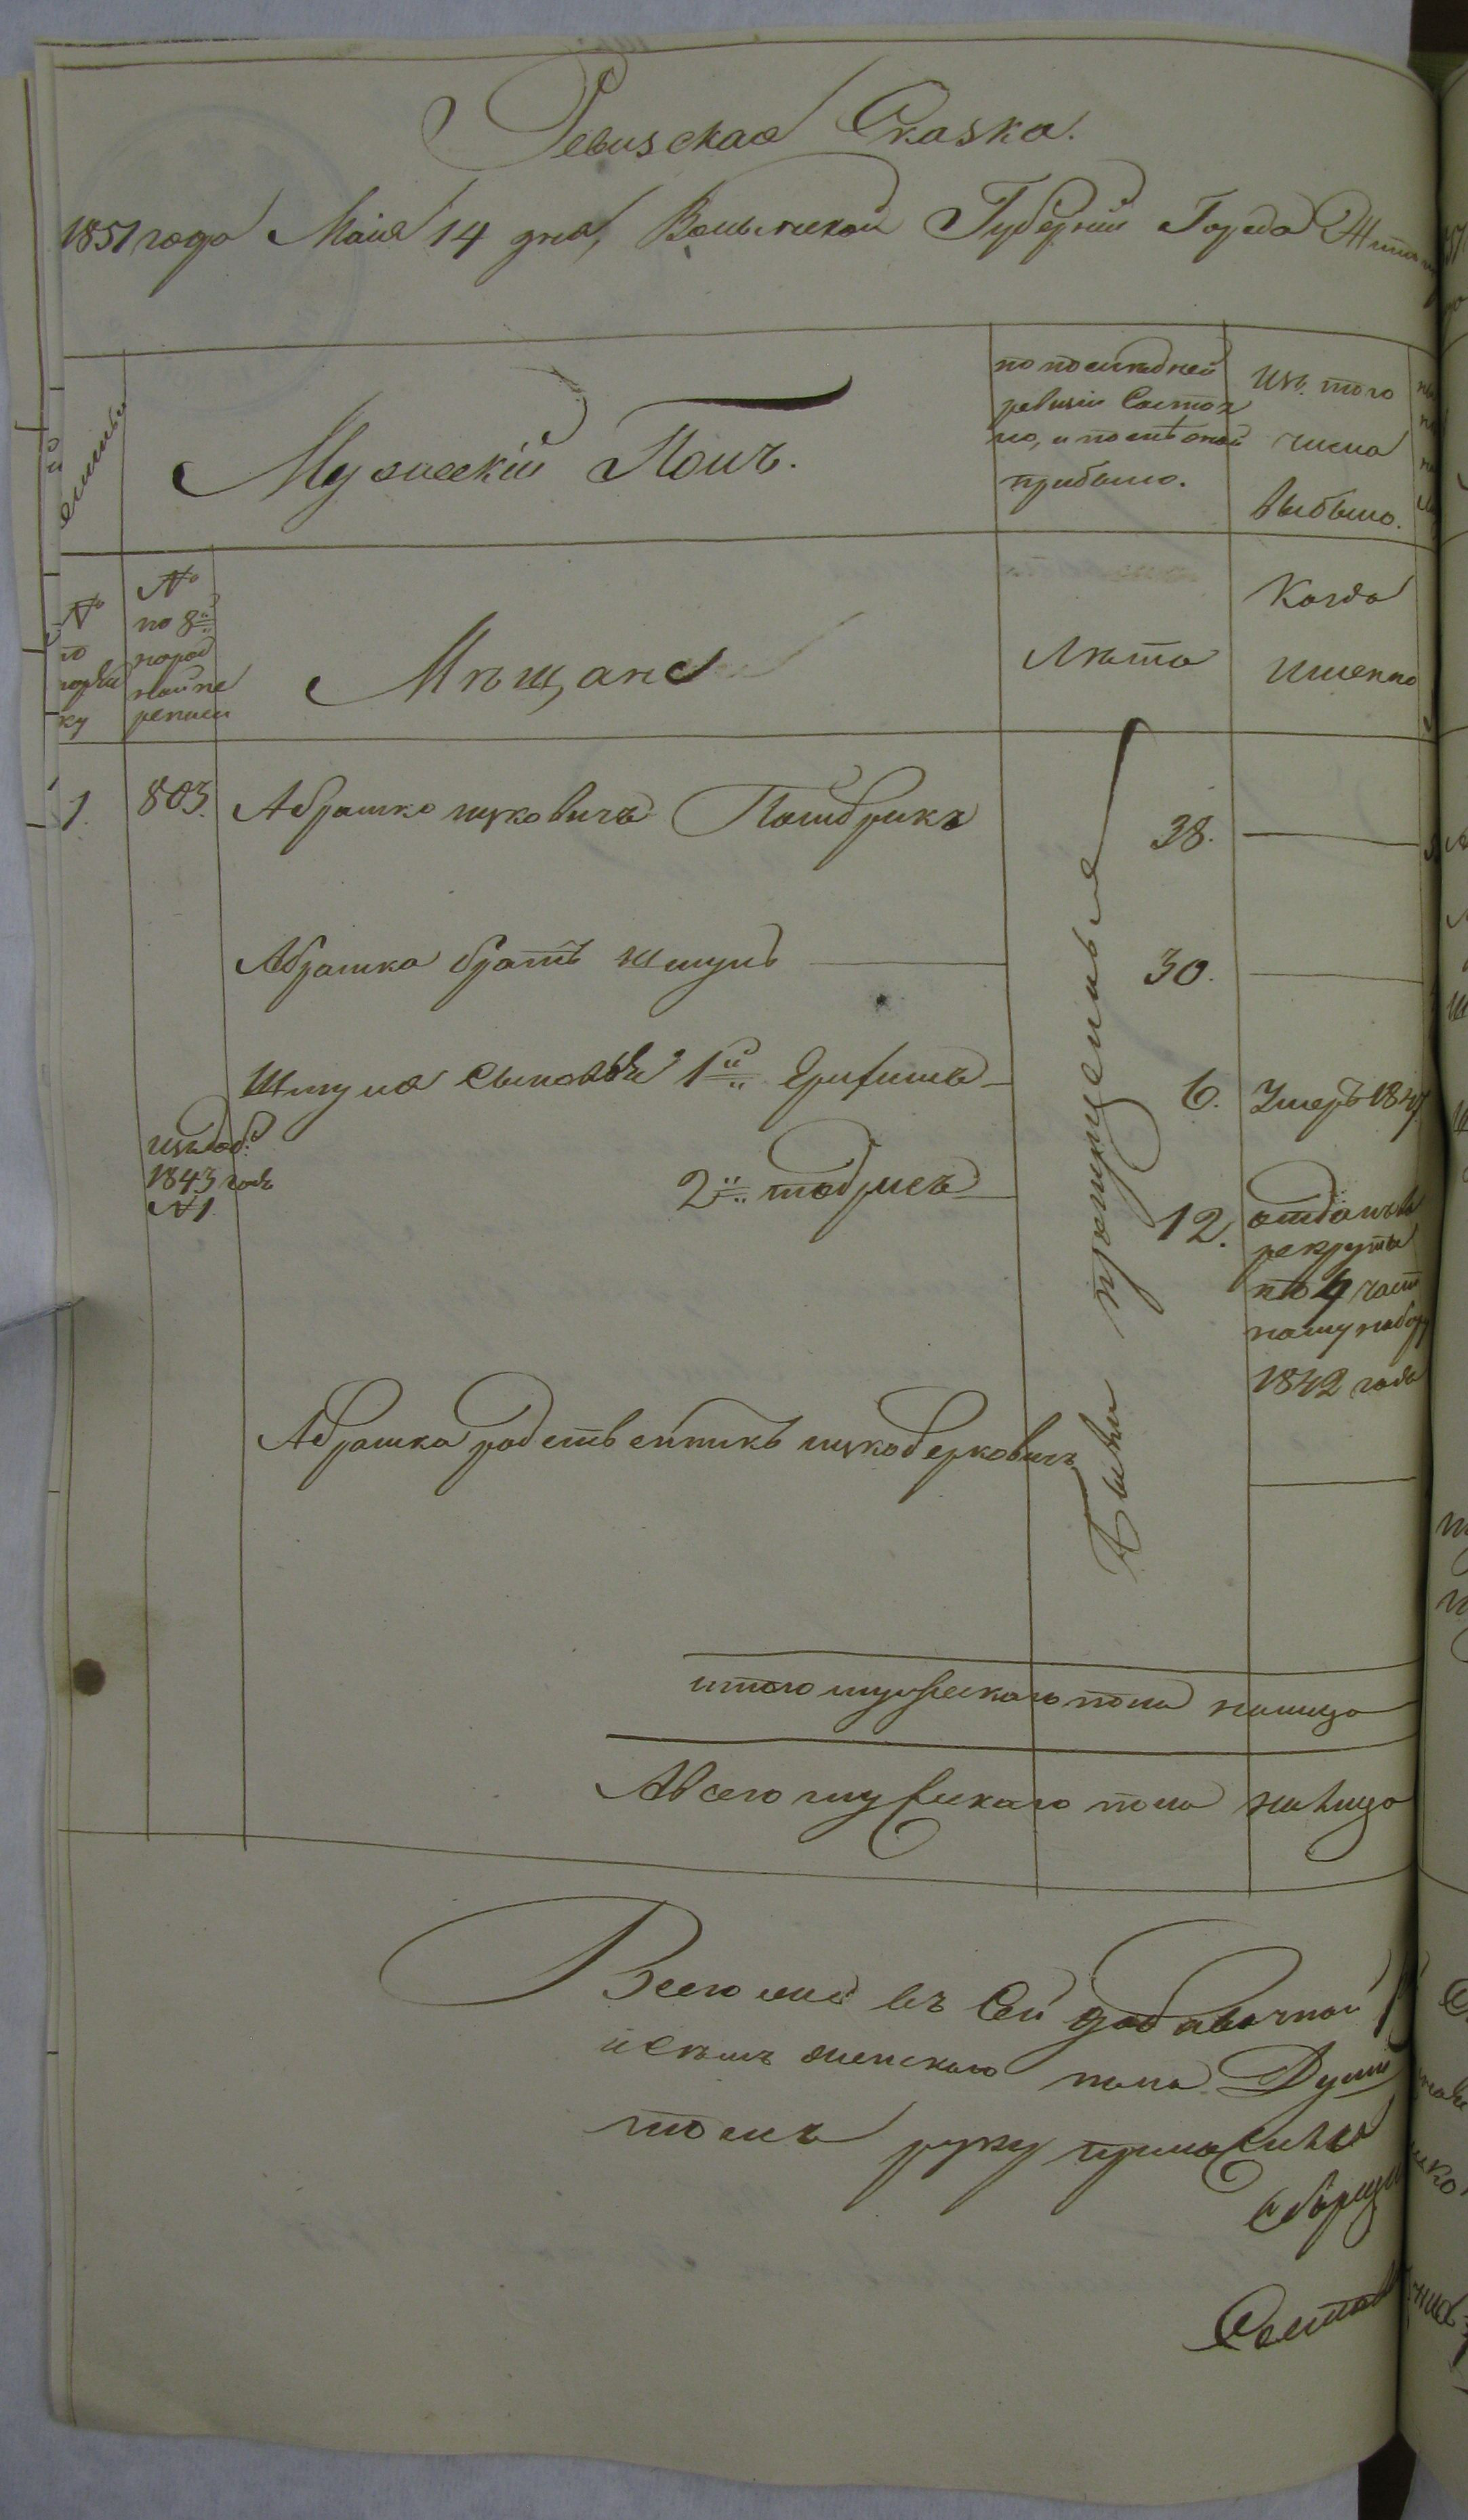 Ревизская Сказка.
1851 года Маія 14 дня, Волынской Губерніи Города Жито
Мужескій Полъ.
по последней
ревизіи Состоя
ло, и после оной
прибыло.
Изъ того
числа
выбыло.
№
по
порядку
№
по 8й
народ
ной пе
реписи
Мѣщане
Лѣта
Когда
Именно
1. 803. Абрашко Ицковичъ 38.
Абрашка братъ Шмуль 30.
Шмуля Сыновья 1й 6. Умеръ 184
из доб.
1843 года
№ 1
2й 12. отданъ въ
рекруты
по 4 част
ному набору
1842 года
Абрашка родственникъ Ицко Берковичъ
Были пропущенные
итого мужескаго пола налицо
А всего мужескаго пола налицо
Всего въ Сей добавочной
женскаго пола Души
томъ руку приложилъ
Сборщи
Состав